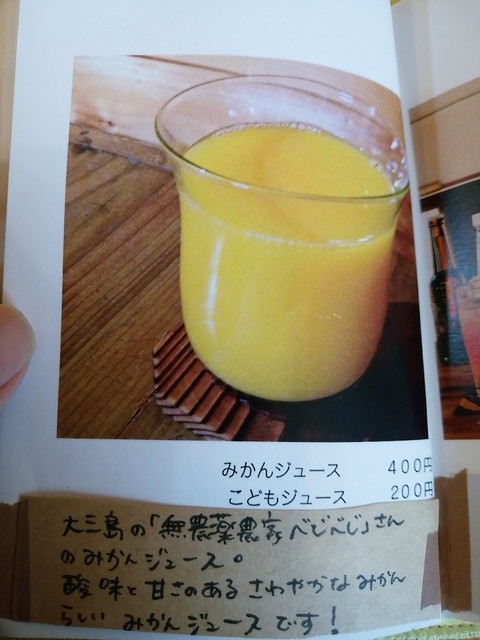 みかんジュース 400円
こどもジュース 200円
大三島の「無農薬農家べじべじ」さん
のみかんジュース。
酸味と甘さのあるさわやかなみかん
らしい みかんジュースです!